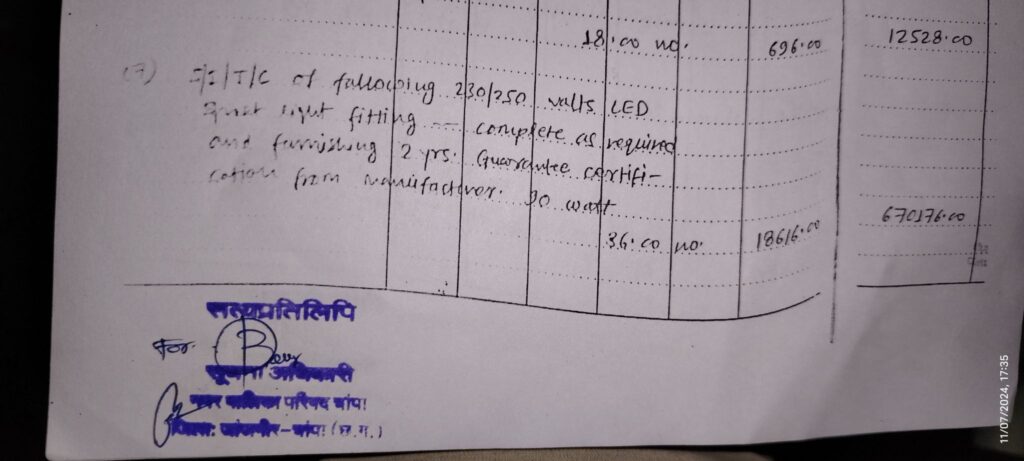 18.00 no. 696.00 12528.00
(7) S/I/T/C of following 230/250 valts LED
light fitting — complete as required
and furnishing 2 yrs. Guarantee certifi-
cation from manufacturer. 90 watt
36.00 no. 18616.00 670176.00
सत्यप्रतिलिपि
For
सूचना अधिकारी
नगर पालिका परिषद चांपा
जिला: जांजगीर-चांपा (छ.ग.)
11/07/2024, 17:35